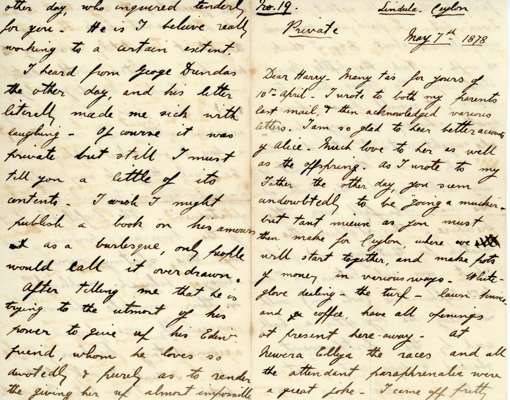 No. 19.
Lindula. Ceylon
Private
May 7th 1878
Dear Harry. Many tas for yours of
10th April. I wrote to both my parents
last mail, & then acknowledged various
letters. I am so glad to hear better accounts
of Alice. Much love to her as well
as the offspring. As I wrote to my
Father the other day, you seem
undoubtedly to be going a mucker.
but tant mieux as you must
then make for Ceylon, where we
will start together, and make pots
of money in various ways. White-
glove dealing - the turf - lawn tennis.
and coffee, have all openings
at present here-away. At
Nuwera Ellya the races and all
the attendant paraphrenalia were
a great joke. I came off pretty
other day, who inquired tenderly
for you. He is I believe really
working to a certain extent
I heard from George Dundas
the other day, and his letter
literally made me sick with
laughing. Of course it was
private but still I must
tell you a little of its
contents. I wish I might
publish a book on his amours
as a burlesque, only people
would call it overdrawn.
After telling me that he is
trying to the utmost of his
power to give up his Edinr
friend, whom he loves so
devotedly & purely as to render
the giving her up almost impossible